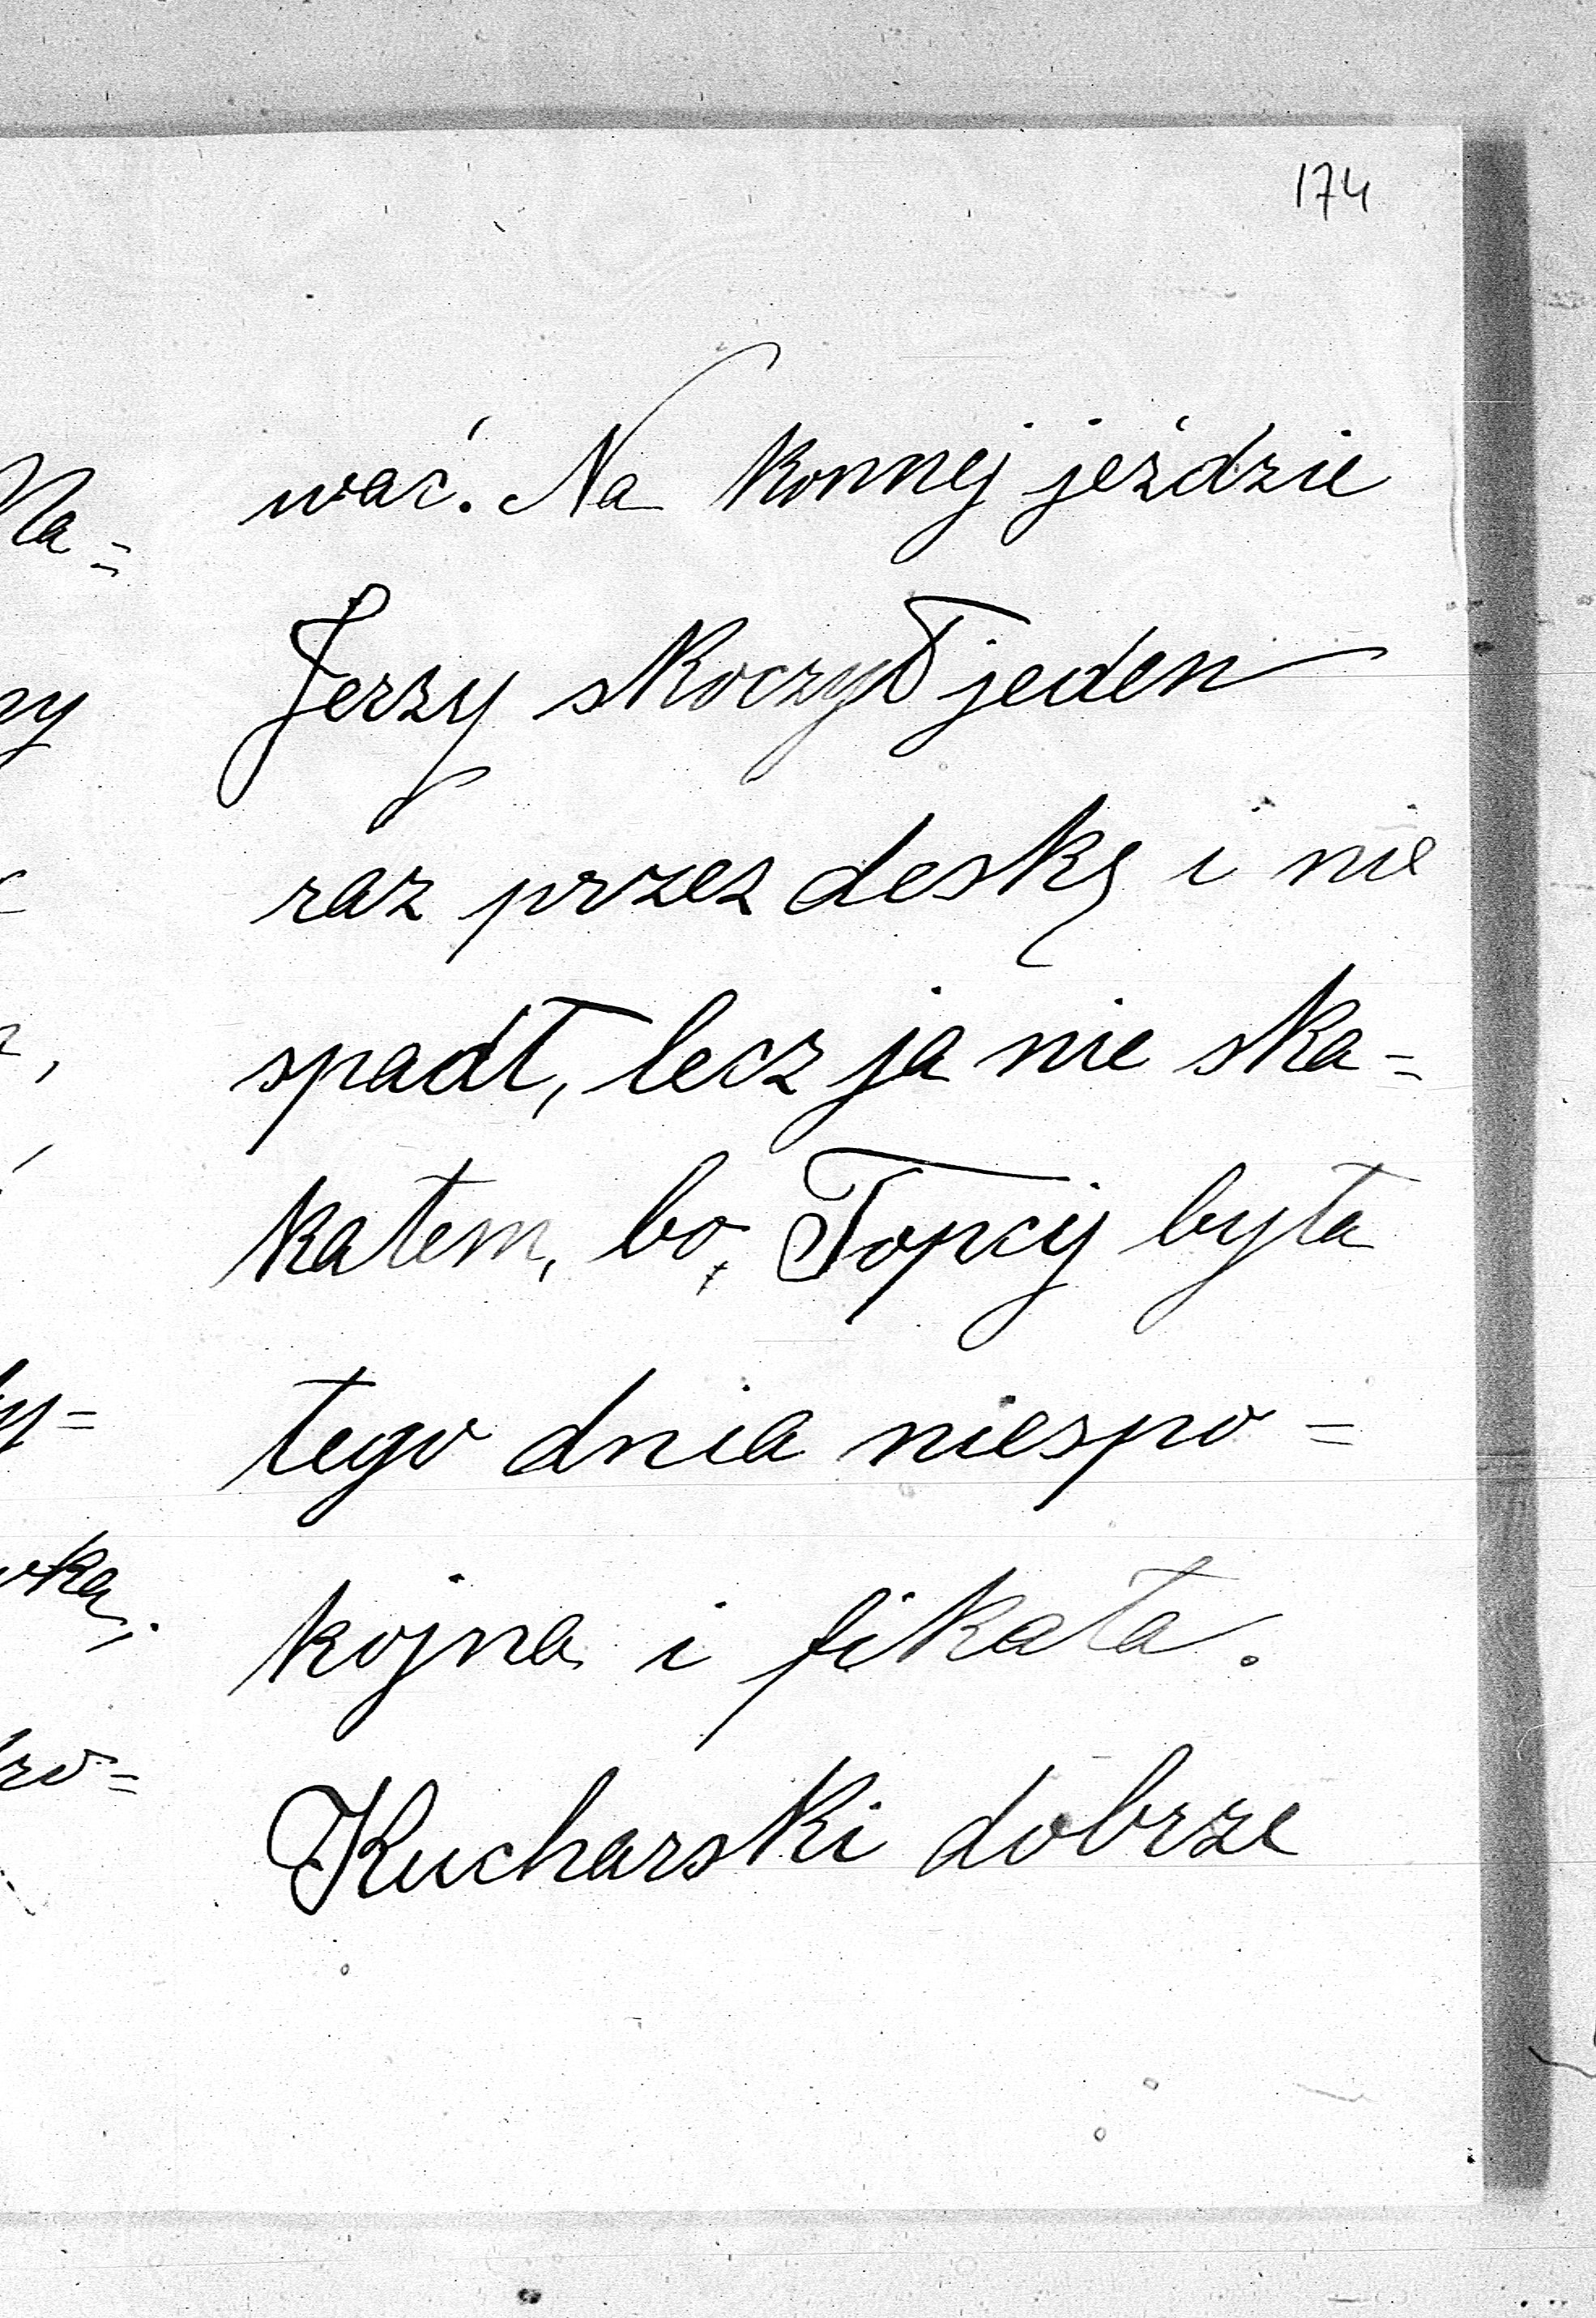 174
wać. Na konnej jeździe
Jerzy skoczył jeden
raz przez deskę i nie
spadł, lecz ja nie ska=
kałem, bo, Topcij była
tego dnia niespo=
kojna i fikała.
Kucharski dobrze